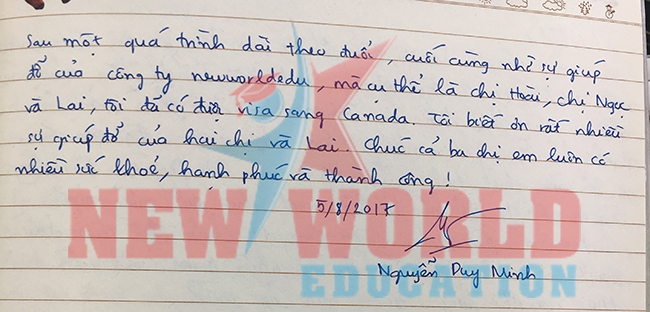 Sau một quá trình dài theo đuổi, cuối cùng nhờ sự giúp
đỡ của công ty newworldedu, mà cụ thể là chị Hoài, chị Ngọc
và Lai, tôi đã có được visa sang Canada. Tôi biết ơn rất nhiều
sự giúp đỡ của hai chị và Lai. Chúc cả ba chị em luôn có
nhiều sức khoẻ, hạnh phúc và thành công!
5/8/2017
NEW WORLD
EDUCATION
Nguyễn Duy Minh